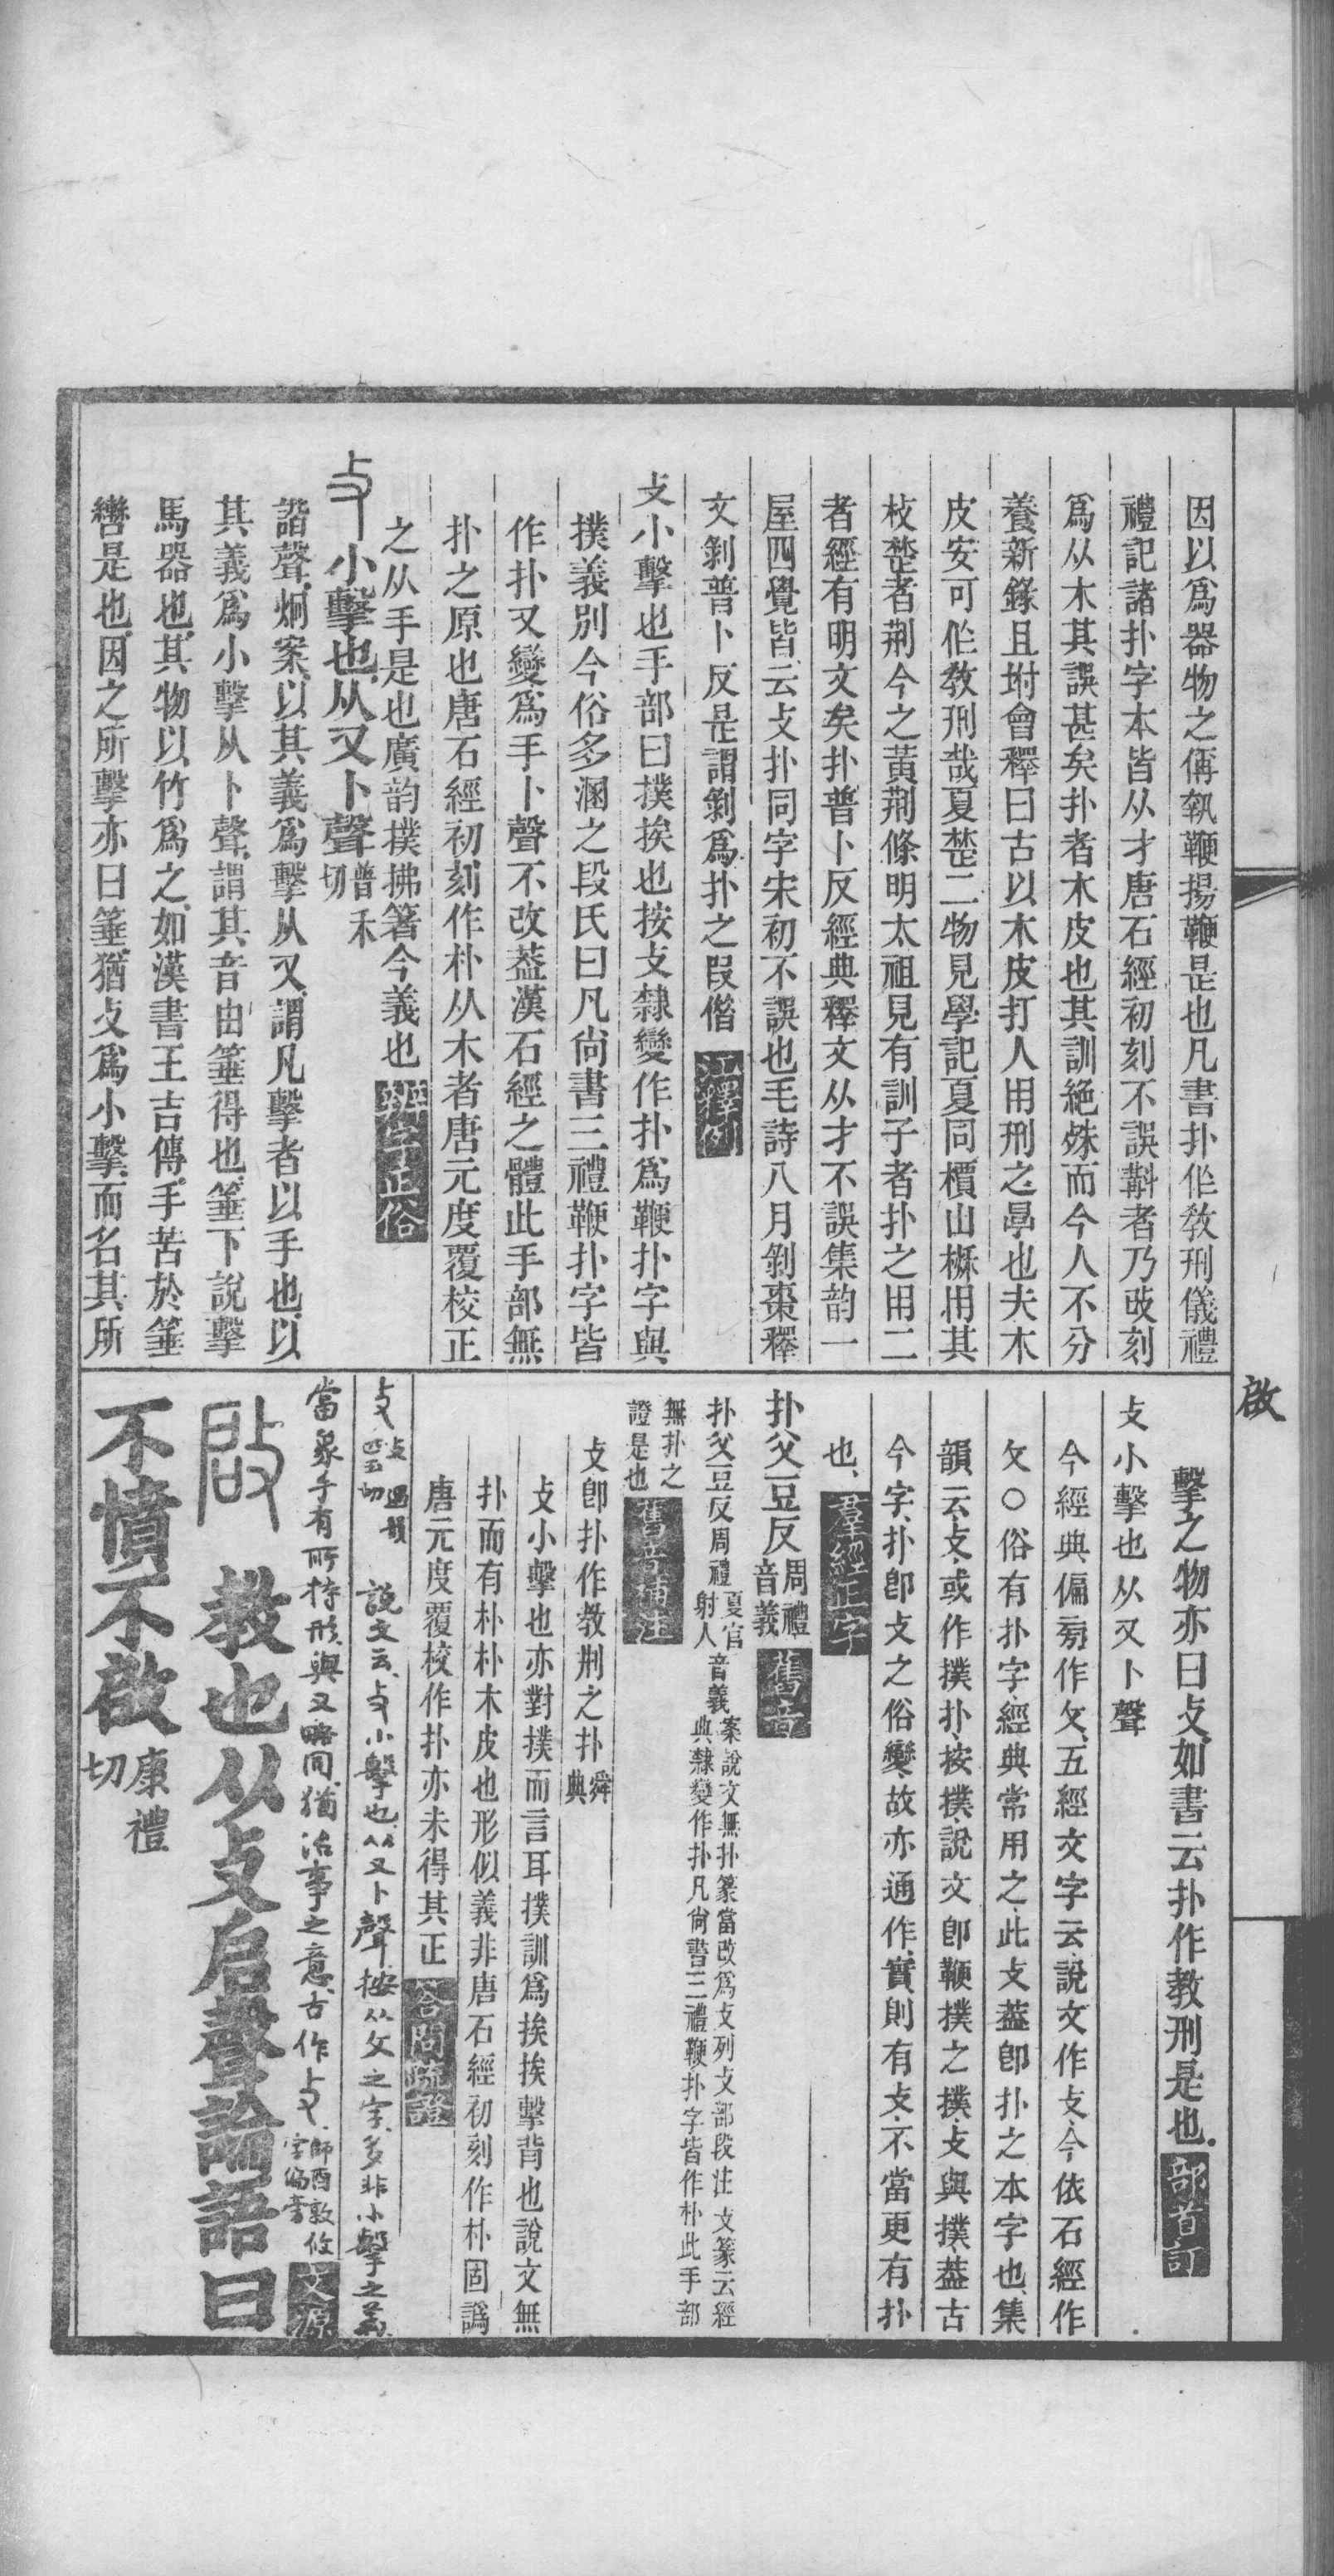 因以爲器物之偁執鞭揚鞭是也凡書扑作敎刑儀禮
禮記諸扑字本皆从才唐石經初刻不誤斠者乃改刻
爲从木其誤甚矣扑者木皮也其訓絶殊而今人不分
養新錄且坿會釋曰古以木皮打人用刑之㫗也夫木
皮安可作敎刑哉夏楚二物見學記夏同檟山榎用其
枝楚者荆今之黃荆條明太祖見有訓子者扑之用二
者經有明文矣扑普卜反經典釋文从才不誤集韵一
屋四覺皆云攴扑同字宋初不誤也毛詩八月剝棗釋
文剝普卜反是謂剝爲扑之叚借 江釋例
攴小擊也手部曰撲挨也按攴隸變作扑爲鞭扑字與
撲義別今俗多溷之段氏曰凡尙書三禮鞭扑字皆
作扑又變爲手卜聲不改葢漢石經之體此手部無
扑之原也唐石經初刻作朴从木者唐元度覆校正
之从手是也廣韵撲拂箸今義也 經字正俗
攴 小擊也从又卜聲 普禾切
諧聲炯案以其義爲擊从又謂凡擊者以手也以
其義爲小擊从卜聲謂其音由箠得也箠下說擊
馬器也其物以竹爲之如漢書王吉傳手苦於箠
轡是也因之所擊亦曰箠猶攴爲小擊而名其所
啟
擊之物亦曰攴如書云扑作教刑是也 部首訂
攴小擊也从又卜聲
今經典偏旁作攵五經文字云說文作攴今依石經作
攵○俗有扑字經典常用之此攴葢卽扑之本字也集
韻云攴或作撲扑按撲說文卽鞭撲之撲攴與撲葢古
今字扑卽攴之俗變故亦通作實則有攴不當更有扑
也 羣經正字
扑父豆反 周禮音義 舊音
扑父豆反周禮夏官射人音義案說文無扑篆當改爲攴列攴部段注攴篆云經
典隸變作扑凡尙書三禮鞭扑字皆作朴此手部
無扑之
證是也 舊音補注
攴卽扑作教荆之扑 舜典
攴小擊也亦對撲而言耳撲訓爲挨挨擊背也說文無
扑而有朴朴木皮也形似義非唐石經初刻作朴固譌
唐元度覆校作扑亦未得其正 答問疏證
攴 遇韻 攴四切 說文云攴小擊也从又卜聲按从攵之字多非小擊之義
當象手有所持形與又略同猶治事之意古作攴 師酉敦攸字偏旁 文源
啟 教也从攴启聲論語曰
不憤不啟 康禮切